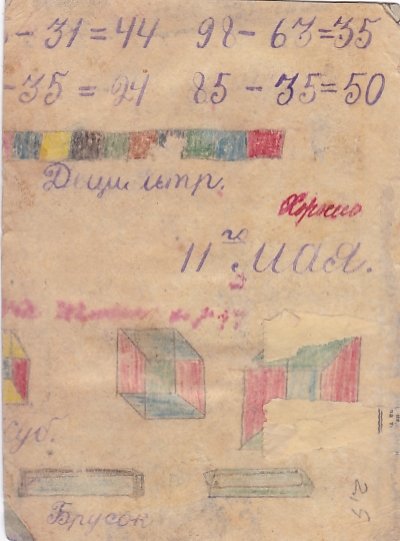 - 31 = 44 98 - 63 = 35
- 35 = 24 85 - 35 = 50
Дециметр.
Хорошо
11го мая.
куб.
Брусок